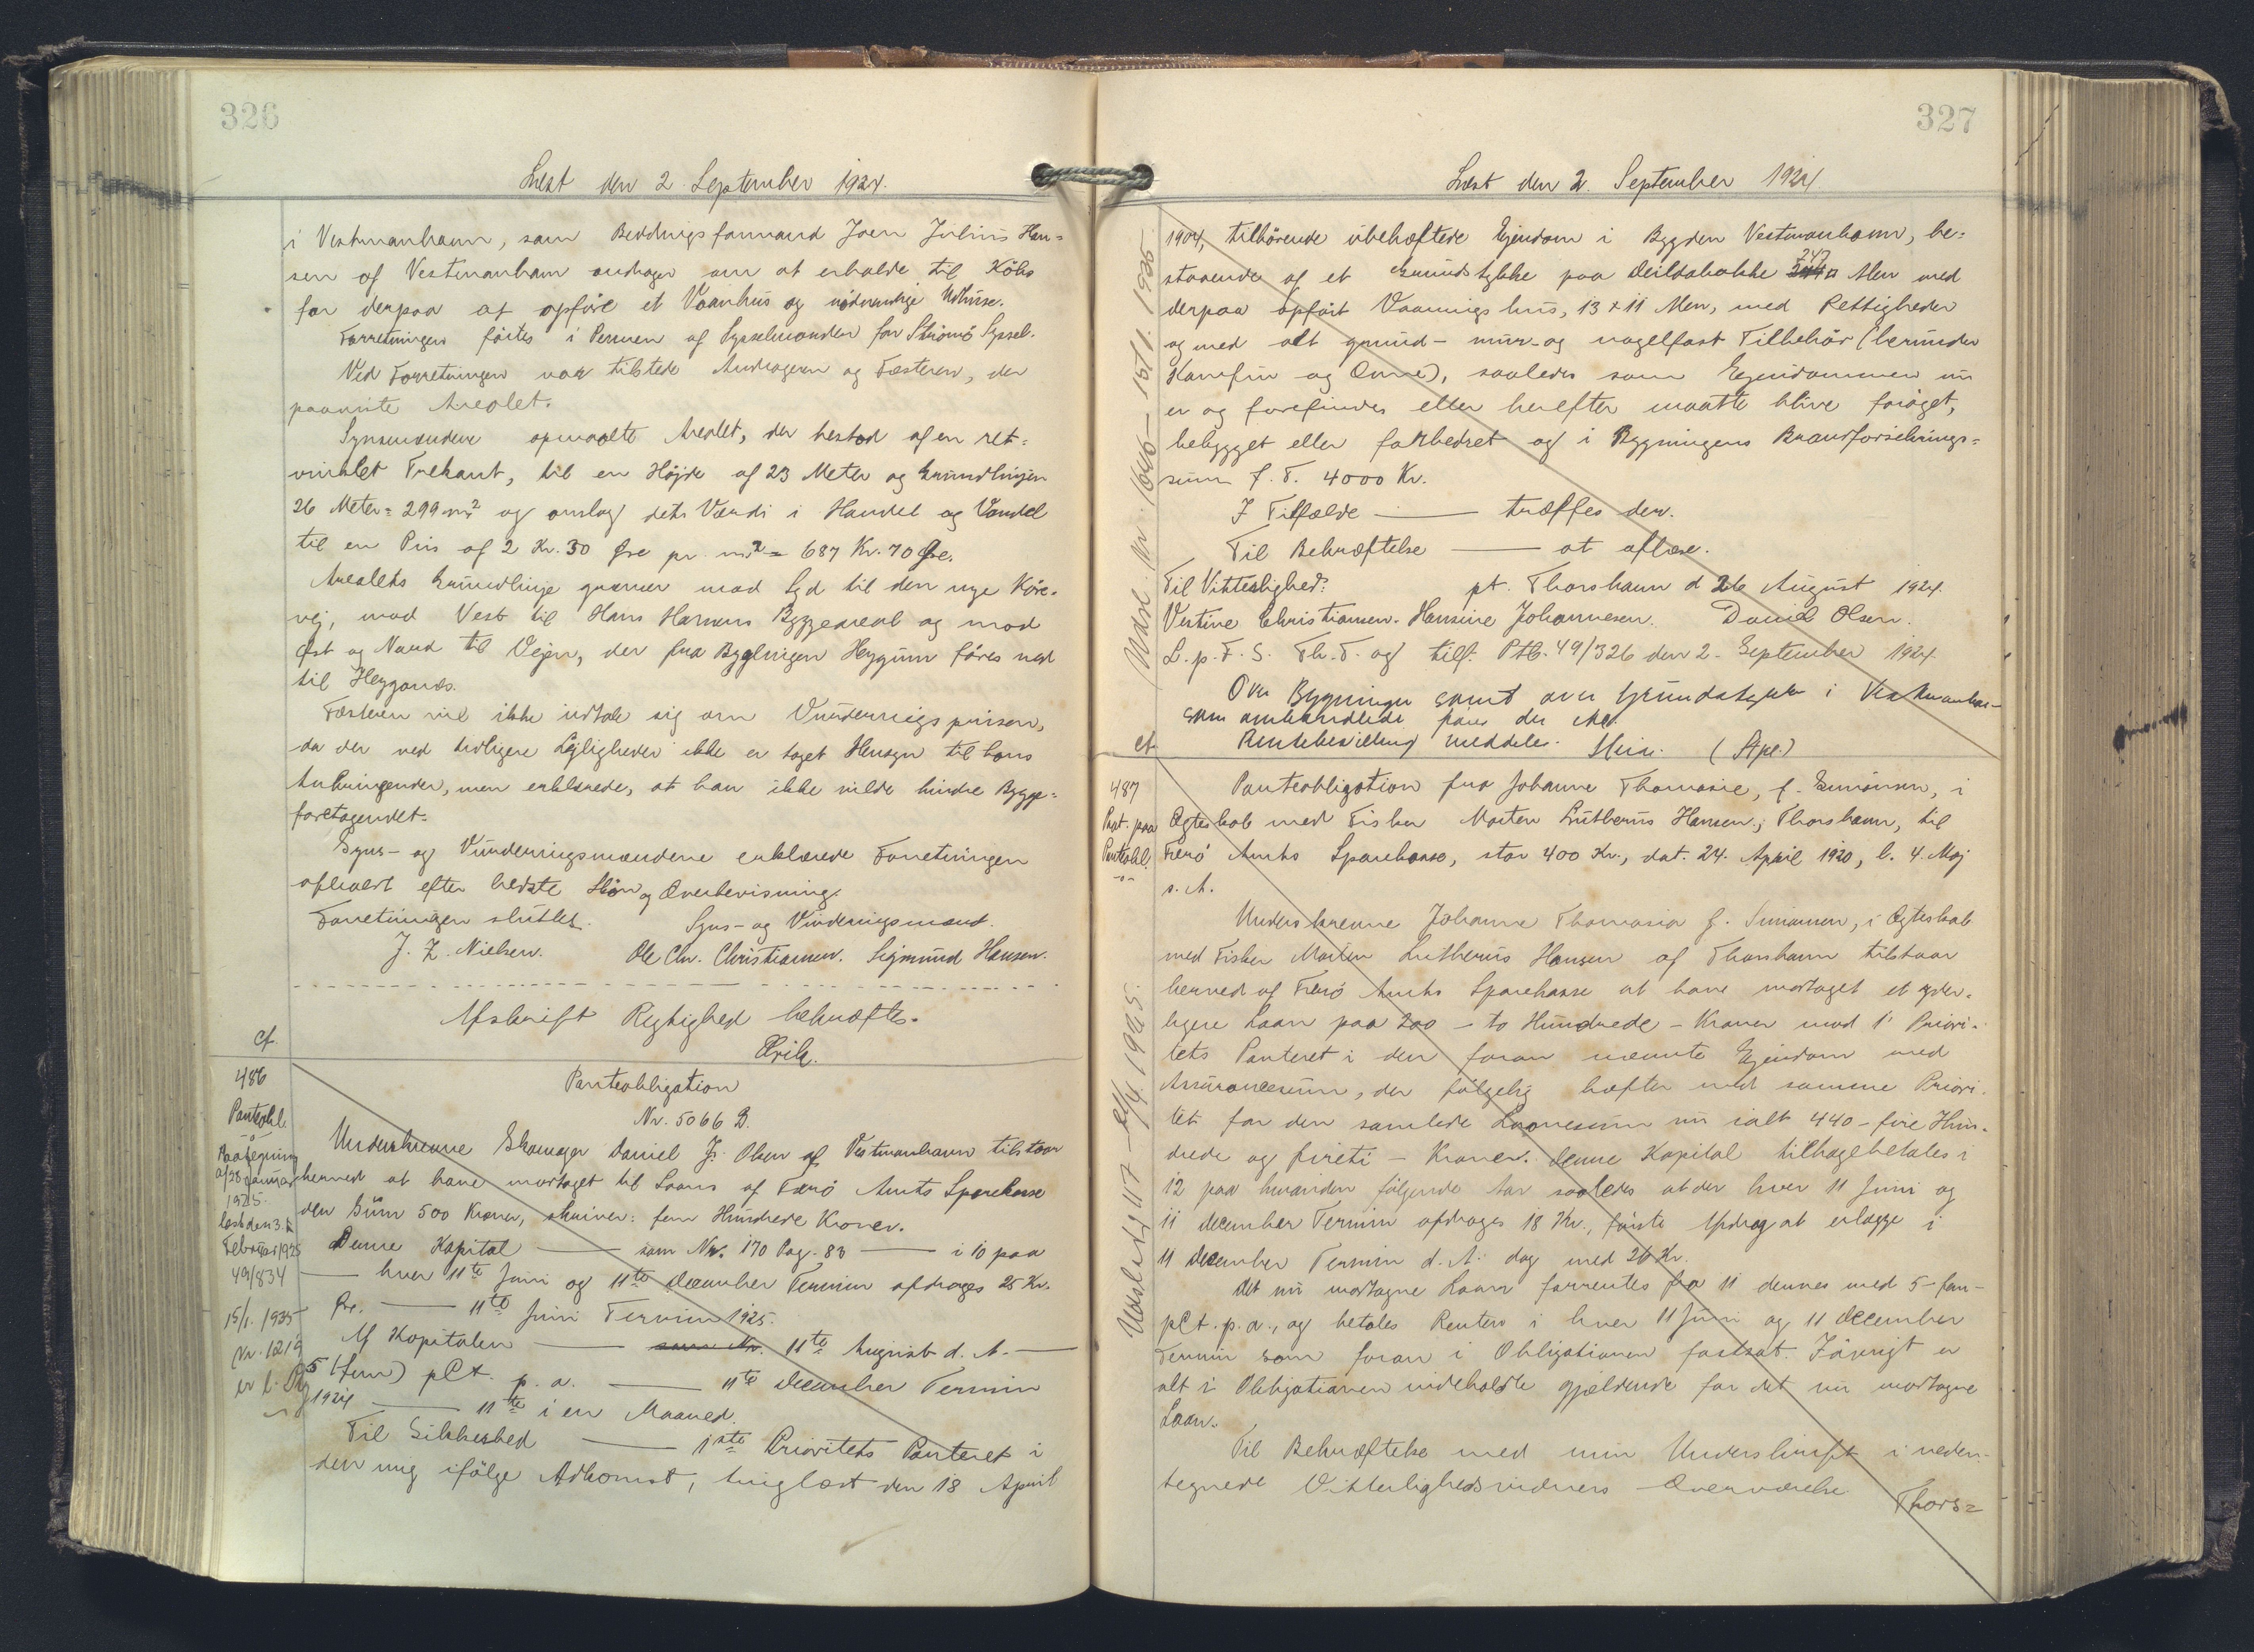 326
Læst den 2 September 1924.
i Vestmanhavn, som Beddingsformand Joen Julius Han=
sen af Vestmanhavn andrager om at erholde til Købs
for derpaa at opføre et Vaanhus og nødvendige Udhuse.
Forretningen førtes i Pennen af Sysselmanden for Strømø Syssel.
Ved Forretningen var tilstede Andrageren og Fæsteren, der
paaviste Arealet.
Synsmændene opmaalte Arealet, der bestod af en ret=
vinklet Trekant, til en Højde af 23 Meter og Grundlinjen
26 Meter = 299 m² og anslog dets Værdi i Handel og Vandel
til en Pris af 2 Kr. 30 Øre pr. m² = 687 Kr. 70 Øre.
Arealets Grundlinje grænser mod Syd til den nye Køre=
vej, mod Vest til Hans Hansens Byggeareal og mod
Øst og Nord til Vejen, der fra Bygdingen Heygum føres ned
til Heyganæs.
Fæsteren vil ikke udtale sig om Vurderingsprisen,
da der ved tidligere Lejligheder ikke er taget Hensyn til hans
Anbringender, men erklærede, at han ikke vilde hindre Bygge=
foretagendet.
Syns- og Vurderingsmændene erklærede Forretningen
afleveret efter bedste Skøn og Overbevisning.
Forretningen sluttet.
Syns- og Vurderingsmænd.
J. Z. Nielsen. Ole Chr. Christiansen. Sigmund Hansen.
Afskrift Rigtighed bekræftes.
Cf.
486
Pantobl.
Paategning
af 28 Januar
1925.
læst den 3
Februar 1925
49/834
15/1. 1935
Nr. 1219
Panteobligation
Nr. 5066 B.
Underskrevne Skomager Daniel J. Olsen af Vestmanhavn tilstaar
herved at have modtaget til Laans af Færø Amts Sparekasse
den Sum 500 Kroner, skriver: fem Hundrede Kroner.
Denne Kapital — som Nr. 170 Pag. 83 — i 10 paa
— hver 11te Juni og 11te December Termin afdrages 25 Kr.
Øre. — 11te Juni Termin 1925.
Af Kapitalen — 11te August d. A. —
5 (fem) pCt. p. a. — 11te December Termin
1924 — 11te i en Maaned.
Til Sikkerhed — 1ste Prioritets Panteret i
den mig ifølge Adkomst, tinglæst den 18 April
327
Læst den 2. September 1924.
1904, tilhørende ubehæftede Ejendom i Bygden Vestmanhavn, be=
staaende af et Grundstykke paa Deildabakke 747 □ Alen med
derpaa opført Vaaningshus, 13 x 11 Alen, med Rettigheder
og med alt grund- mur- og nagelfast Tilbehør (herunder
Komfur og Ovne), saaledes som Ejendommen nu
er og forefindes eller herefter maatte blive forøget,
bebygget eller forbedret og i Bygningens Brandforsikrings=
sum f. T. 4000 Kr.
I Tilfælde — træffes der.
Til Bekræftelse — at aflæse.
Til Vitterlighed: pt. Thorshavn d 26 August 1924.
Vestine Christiansen. Hansine Johannesen. Daniel Olsen.
L. p. F. S. Th. T. og tilf. Ptb. 49/326 den 2. September 1924.
Over Bygninger samt over Grundstykke i Vestmanhavn
som ommeldte
Rentebevilling meddeles. (Stpl.)
Cf.
Udsl. Nr. 1646 – 15/1. 1935
487
Paat. paa
Pantobl.
Panteobligation fra Johanne Thomasie, f. Simonsen, i
Ægteskab med Fisker Morten Lutherus Hansen, Thorshavn, til
Færø Amts Sparekasse, stor 400 Kr., dat. 24. April 1920, l. 4. Maj
s. A.
Underskrevne Johanne Thomasia f. Simonsen, i Ægteskab
med Fisker Morten Lutherus Hansen af Thorshavn tilstaar
herved af Færø Amts Sparekasse at have modtaget et yder=
ligere Laan paa 200 – to Hundrede – Kroner mod 1' Priori=
tets Panteret i den foran nævnte Ejendom med
Assurancesum, der følgelig hæfter med samme Priori=
tet for den samlede Laanesum nu ialt 440 – fire Hun=
drede og fireti – Kroner. Denne Kapital tilbagebetales i
12 paa hinanden følgende Aar saaledes at der hver 11 Juni og
11 December Termin afdrages 18 Kr., første Afdrag at erlægge i
11 December Termin d. A. dog med 26 Kr.
Det nu modtagne Laan forrentes fra 11 dennes med 5 – fem –
pCt. p. a., og betales Renten i hver 11 Juni og 11 December
Termin som foran i Obligationen fastsat. Iøvrigt er
alt i Obligationen indeholdte gjældende for det nu modtagne
Laan.
Til Bekræftelse med min Underskrift i neden=
tegnede Vitterlighedsvidners Overværelse Thors=